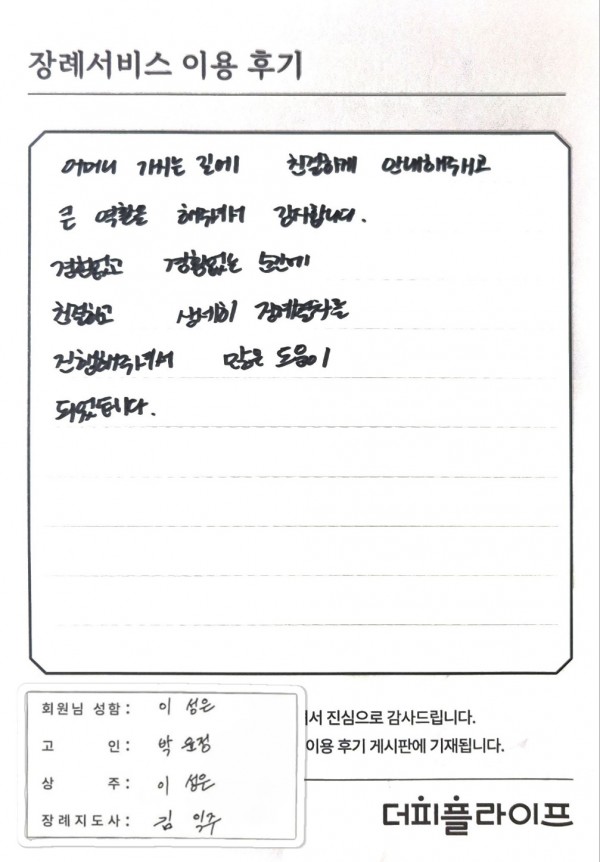 장례서비스 이용 후기
어머니 가시는 길에 친절하게 안내해주시고
큰 역활을 해주셔서 감사합니다.
경황없고 경황없는 순간에
친절하고 상세히 장례절차를
진행해주셔서 많은 도움이
되었습니다.
회원님 성함 : 이 성은
서 진심으로 감사드립니다.
고 인 : 박 순정
이용 후기 게시판에 기재됩니다.
상 주 : 이 성은
장례지도사 : 김 익주
더피플라이프